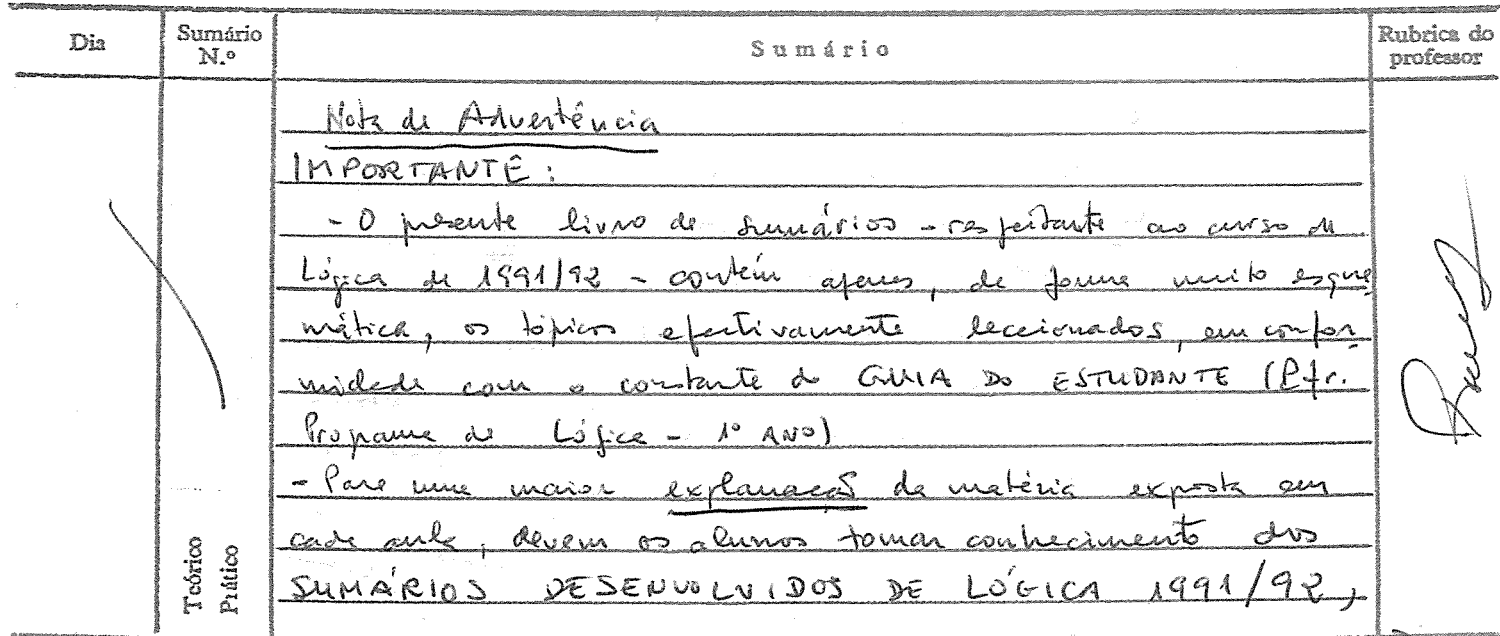 Dia
Sumário N.º
Sumário
Rubrica do professor
Nota de Advertência
IMPORTANTE:
- O presente livro de sumários - respeitante ao curso de
Lógica de 1991/92 - contém apenas, de forma muito esque
mática, os tópicos efectivamente leccionados, em confor
midade com o constante do GUIA DO ESTUDANTE (
Programa de Lógica - 1º ANO)
- Para uma maior explanação da matéria exposta em
cada aula, devem os alunos tomar conhecimento dos
SUMÁRIOS DESENVOLVIDOS DE LÓGICA 1991/92,
Teórico
Prático